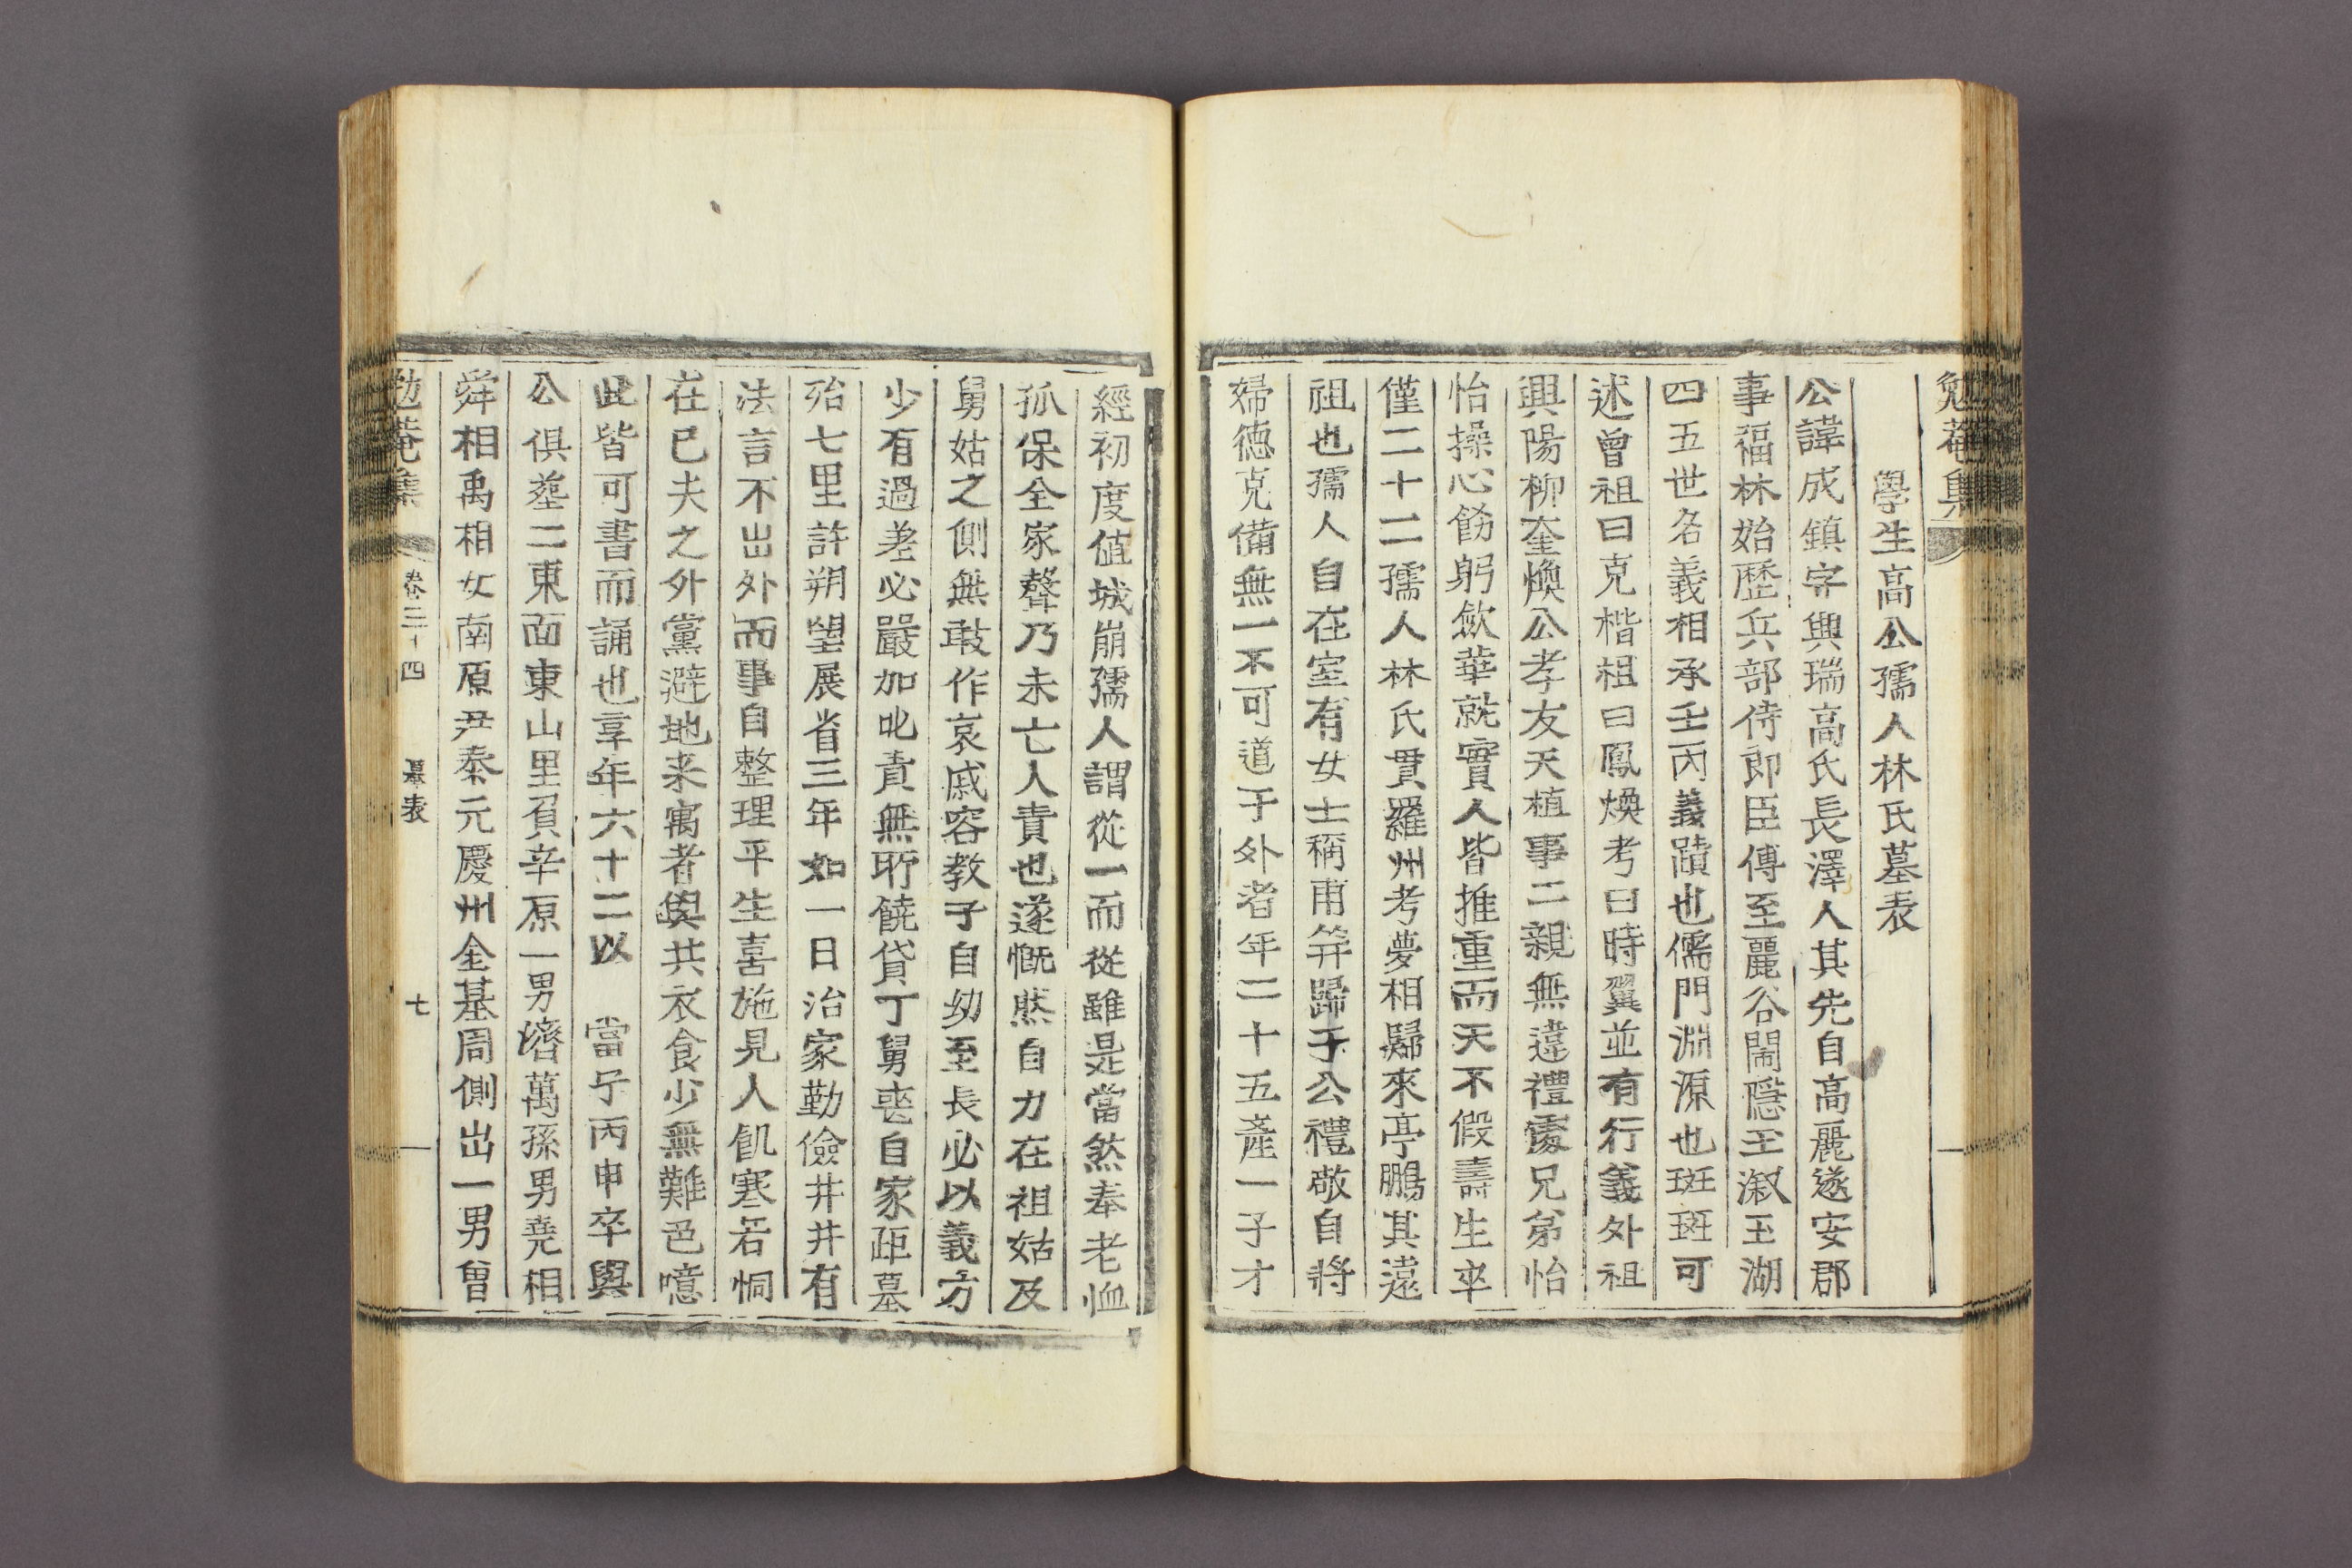 勉菴集
學生高公孺人林氏墓表
公諱成鎮字興瑞高氏長澤人其先自高麗遂安郡
事福林始歷兵部侍郎臣傅至麗谷閙隱玉溆玉湖
四五世名義相承壬丙義蹟也儒門淵源也斑斑可
述曾祖曰克楷祖曰鳳煥考曰時翼並有行義外祖
興陽柳奎煥公孝友天植事二親無違禮處兄弟怡
怡操心飭躬斂華就實人皆推重而天不假壽生卒
僅二十二孺人林氏貫羅州考夢相歸來亭鵬其遠
祖也孺人自在室有女士稱甫笄歸于公禮敬自將
婦德克備無一不可道于外者年二十五產一子才
經初度値城崩孺人謂從一而從雖是當然奉老恤
孤保全家聲乃未亡人責也遂慨然自力在祖姑及
舅姑之側無敢作哀戚容教子自幼至長必以義方
少有過差必嚴加叱責無所饒貸丁舅喪自家距墓
殆七里許朔望展省三年如一日治家勤儉井井有
法言不出外而事自整理平生喜施見人飢寒若恫
在己夫之外黨避地来寓者與共衣食少無難色噫
此皆可書而誦也享年六十二以 當宁丙申卒與
公俱葬二東面東山里負辛原一男濟萬孫男堯相
舜相禹相女南原尹泰元慶州金基周側出一男曾
勉菴集 卷二十四 墓表 七